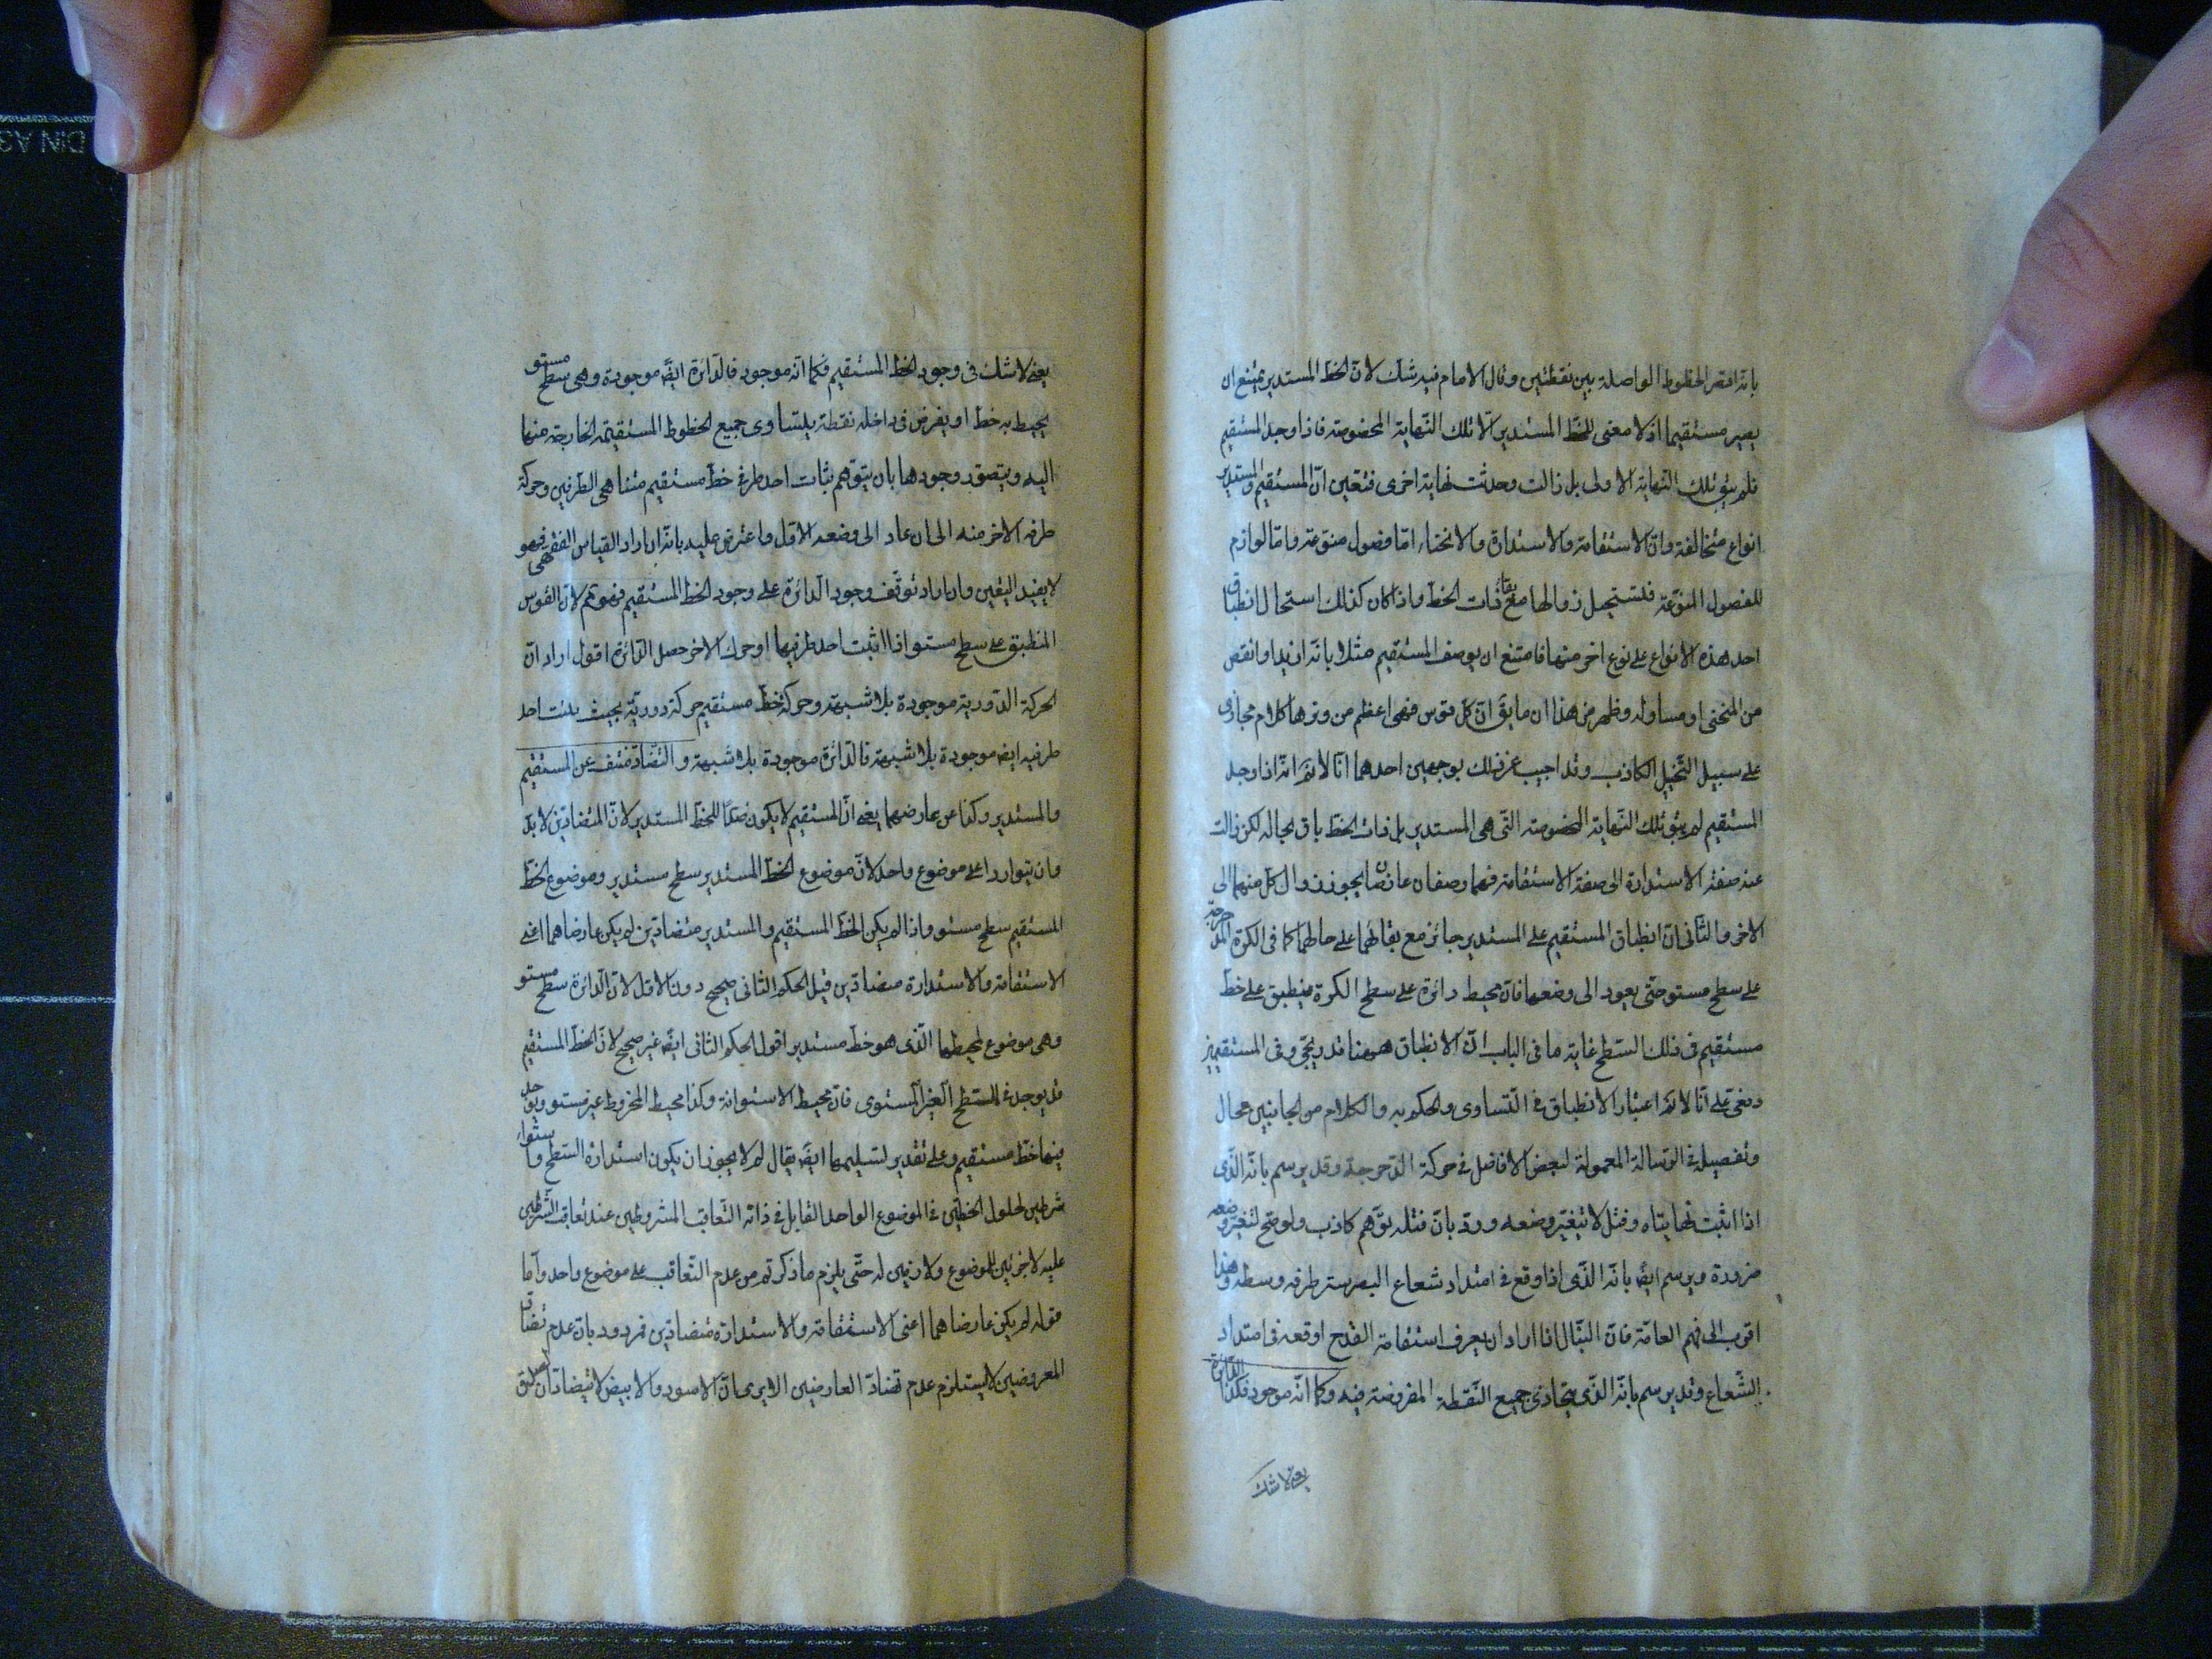 بانه اقصر الخطوط الواصلة بين نقطتين وقال الامام فيه شك لان الخط المستدير يمتنع ان
يصير مستقيما اذ لا معنى للخط المستدير الا تلك النهاية المخصوصة فاذا وجد المستقيم
فلم يبق تلك النهاية الاولى بل زالت وحدثت نهاية اخرى فتعين ان المستقيم والمستدير
انواع متخالفة وان الاستقامة والاستدارة والانحناء اما فصول منوعة واما لوازم
للفصول المنوعة فلتستحيل زوالها مع بقاء ذات الخط واذا كان كذلك استحال انطباق
احد هذه الانواع على نوع اخر منها فامتنع ان يوصف المستقيم مثلا بانه ازيد او انقص
من المنحنى او مساو له وظهر من هذا ان ما يق ان كل قوس فهى اعظم من وترها كلام مجازى
على سبيل التخيل الكاذب وقد اجيب عن ذلك بوجهين احدهما انا لا نم انه اذا وجد
المستقيم لم يبق تلك النهاية المخصوصة التى هى المستدير بل ذات الخط باق بحاله لكن زالت
عنه صفة الاستدارة الى صفة الاستقامة فهما وصفان عارضان يجوز زوال كل منهما الى
الاخر والثانى ان انطباق المستقيم على المستدير جائز مع بقائهما على حالهما كما فى الكرة المدحرجة
على سطح مستو حتى يعود الى وضعها فان محيط دائرة على سطح الكرة منطبق على خط
مستقيم فى ذلك السطح غاية ما فى الباب ان الانطباق ههنا تدريجى وفى المستقيمين
دفعى على انا لا نم اعتبار الانطباق فى التساوى والحكم به والكلام من الجانبين مجال
وتفصيله فى الرسالة المعمولة لبعض الافاضل فى حركة الدحرجة وقد يرسم بانه الذى
اذا اثبت نهايتاه وفتل لا يتغير وضعه ورد بان فتله توهم كاذب ولو صح لتغير وضعه
ضرورة ويرسم ايضا بانه الذى اذا وقع فى امتداد شعاع البصر ستر طرفه وسطه وهذا
اقرب الى فهم العامة فان النبال اذا اراد ان يعرف استقامة القدح اوقعه فى امتداد
الشعاع وقد يرسم بانه الذى يتحاذى جميع النقطة المفروضة فيه وكما انه موجود فكذا الدائرة
يعنى لا شك
يعنى لا شك فى وجود الخط المستقيم فكما انه موجود فالدائرة ايضا موجودة وهى سطح مستو
يحيط به خط او يفرض فى داخله نقطة يتساوى جميع الخطوط المستقيمة الخارجة منها
اليه ويتصور وجودها بان يتوهم ثبات احد طرفى خط مستقيم متناهى الطرفين وحركة
طرفه الاخر منه الى ان عاد الى وضعه الاول واعترض عليه بانه ان اراد القياس الفقهى فهو
لا يفيد اليقين وان اراد توقف وجود الدائرة على وجود الخط المستقيم فهو لان القوس
المنطبق على سطح مستو اذا اثبت احد طرفيها او حرك الاخر حصل الدائرة اقول اراد ان
الحركة الدورية موجودة بلا شبهة وحركة خط مستقيم حركة دورية بحيث يثبت احد
طرفيه ايضا موجودة بلا شبهة فالدائرة موجودة بلا شبهة والتضاد منتف عن المستقيم
والمستدير وكذا عن عارضهما يعنى ان المستقيم لا يكون ضدا للخط المستدير لان المتضادين لا بد
وان يتواردا على موضوع واحد لان موضوع الخط المستدير سطح مستدير وموضوع الخط
المستقيم سطح مستو واذا لم يكن الخط المستقيم والمستدير متضادين لم يكن عارضاهما اعنى
الاستقامة والاستدارة متضادين قيل الحكم الثانى صحيح دون الاول لان الدائرة سطح مستو
وهى موضوع لمحيطها الذى هو خط مستدير اقول الحكم الثانى ايضا غير صحيح لان الخط المستقيم
قد يوجد فى السطح الغير المستوى فان محيط الاستوانة وكذا محيط المخروط غير مستو ويوجد
فيها خط مستقيم وعلى تقدير تسليمها ايضا يقال لم لا يجوز ان يكون استدارة السطح واستواء
شرطين لحلول الخطين فى الموضوع الواحد القابل فى ذاته التعاقب المشروطين عند تعاقب الشرطين
عليه لا جزئين للموضوع ولا لازمين له حتى يلزم ما ذكرتم من عدم التعاقب على موضوع واحد واما
قوله لم يكن عارضاهما اعنى الاستقامة والاستدارة متضادين فمردود بان عدم تضاد
المعروضين لا يستلزم عدم تضاد العارضين الا يرى ان الاسود والابيض لا يتضادان